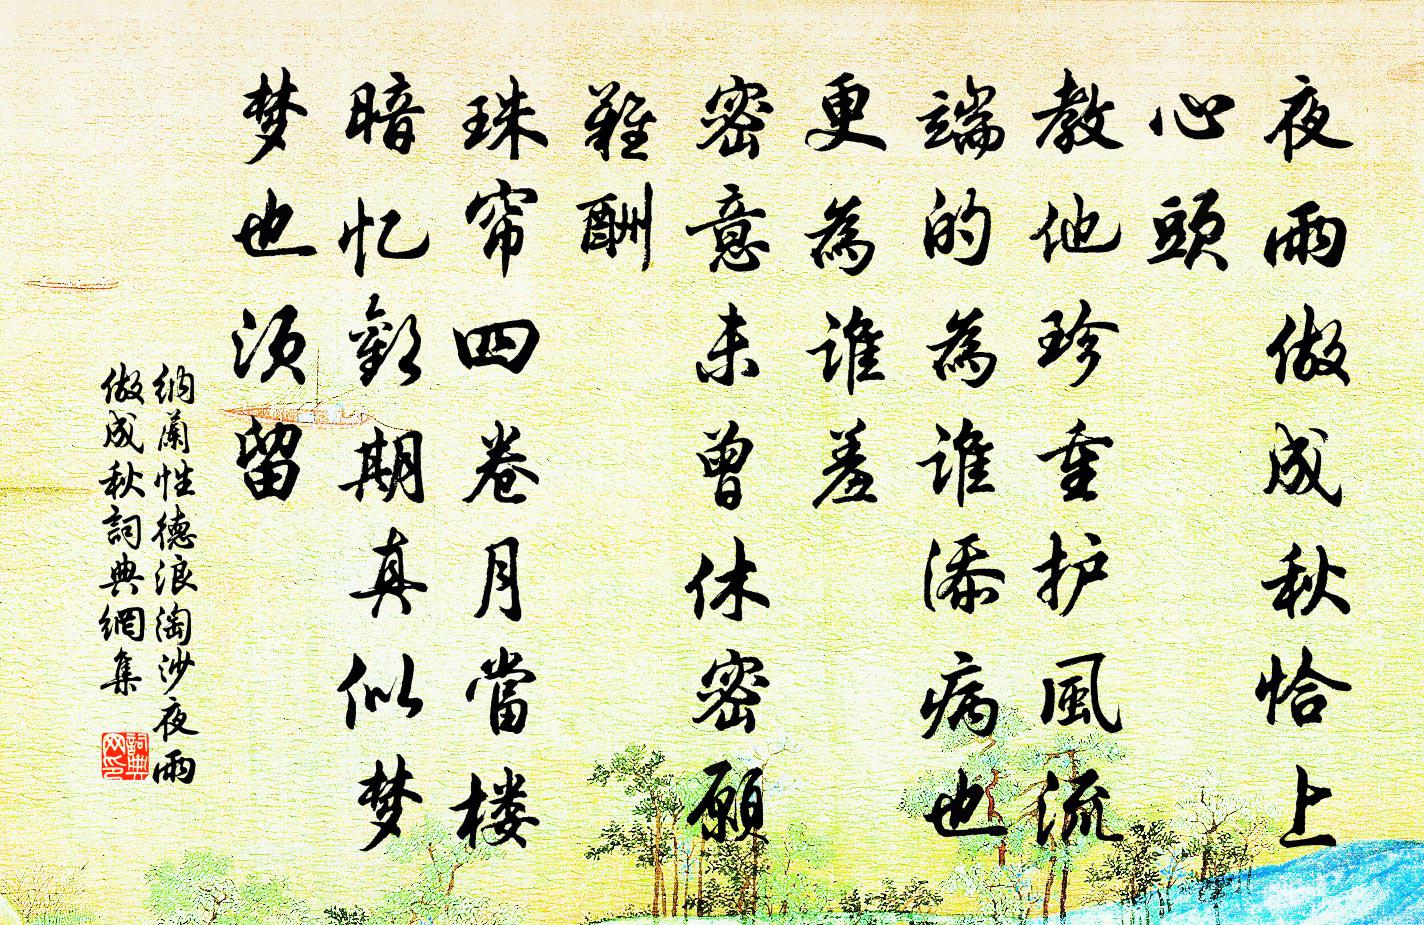 夜雨做成秋恰上
心頭
教他珍重护風流
端的為谁添病也
更為谁羞
密意未曾休密願
難酬
珠帘四卷月當楼
暗忆歡期真似梦
梦也须留
納蘭性德浪淘沙夜雨
做成秋詞典網集
詞典网印